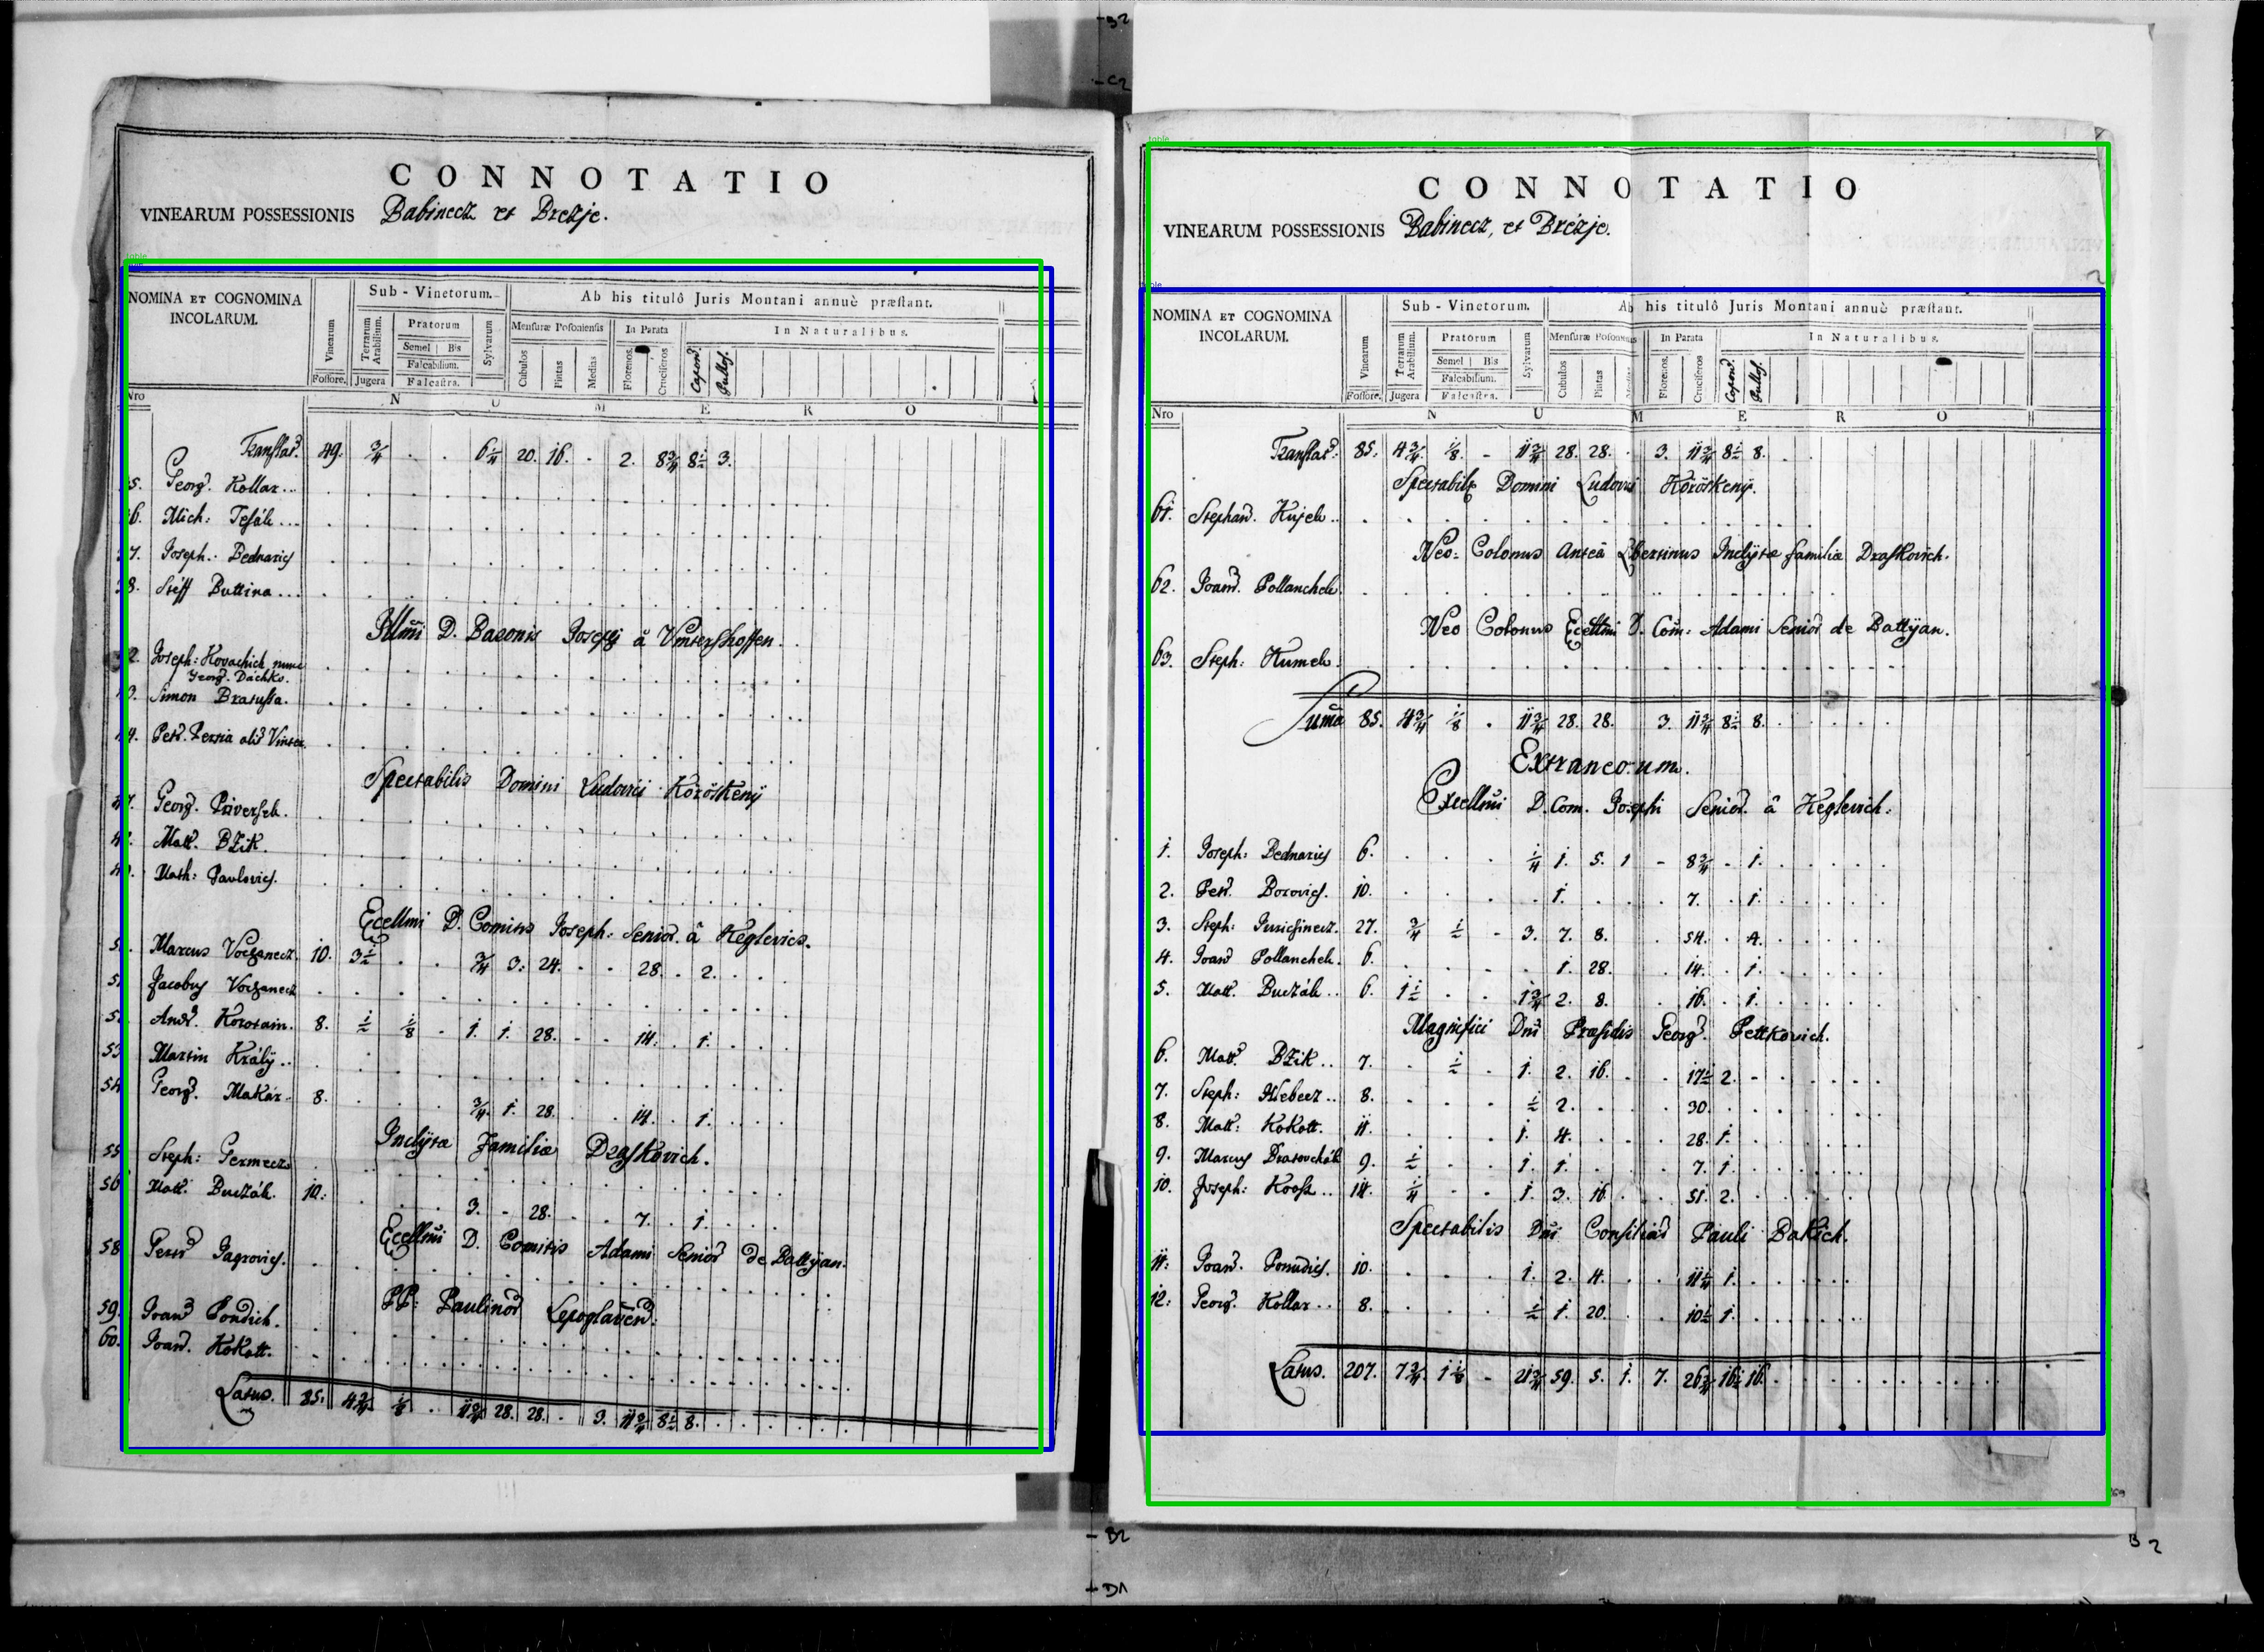 CONNOTATIO
VINEARUM POSSESSIONIS Babinecz et Brezje.
NOMINA ET COGNOMINA INCOLARUM.
Vinearum
Sub-Vinetorum.
Ab his titulô Juris Montani annuè præstant.
Terrarum Arabilium.
Pratorum
Sylvarum
Mensuræ Posoniensis
In Parata
In Naturalibus.
Semel | Bis
Falcabilium.
Cubulos
Pintas
Medias
Florenos.
Cruciferos
Capon.
Pullos.
Fossore. Jugera Falcastra.
Nro
N U M E R O
49. 3/4 . . 6 1/4 20. 16. - 2. 8 3/4 8 1/2 3.
Georg. Kollar...
Mich: Tesák...
Joseph. Bednarics
Steff Buttina...
Illmi D. Baronis Josephi à Vintershoffen.
Joseph: Kovachich nunc
Georg. Dachko.
Simon Bratussa.
Spectabilis Domini Ludovici Köröskenÿ
Georg. Priversek.
Matt. BZik.
Math: Pavlovics.
Ecellmi D. Comitis Joseph: Senior. â Keglevics.
Marcus Voczanecz 10. 3 1/2 . . 3/4 3. 24. - . 28. . 2. . .
Jacobus Voczanecz
Andr. Korotain. 8. 1/2 1/8 - 1. 1. 28. - . 14. . 1. . . .
53 Martin Králÿ..
54 Georg. Makár. 8. . . . 3/4 1. 28. . 14. . 1. . . .
Inclÿtæ Familiæ Draskovich.
55 Steph: Germecz
56 Matt. Buczák. 10. . . . 3. - 28. - . 7. . 1. . . .
Ecellmi D. Comitis Adami Senior de Battÿan.
58 Petr. Jagrovics.
PP: Paulinor Lepoglaven.
59. Joan Pondich.
60. Joan. Kokott.
Latus. 85. 4 3/4 1/8 . 11 3/4 28. 28. . 3. 11 3/4 8 1/2 8.
CONNOTATIO
VINEARUM POSSESSIONIS Babinecz, et Brézje.
NOMINA ET COGNOMINA INCOLARUM.
Vinearum
Sub-Vinetorum.
Ab his titulô Juris Montani annuè præstant.
Terrarum Arabilium.
Pratorum
Sylvarum
Mensuræ Posoniensis
In Parata
In Naturalibus.
Semel | Bis
Falcabilium.
Cubulos
Pintas
Florenos.
Cruciferos
Capon.
Pullos.
Fossore. Jugera Falcastra.
Nro
N U M E R O
85. 4 3/4 1/8 - 11 3/4 28. 28. . 3. 11 3/4 8 1/2 8.
Spectabilis Domini Ludovici Köröskenÿ.
61. Stephan. Kujek..
Neo-Colonus Anteà Libertinus Inclÿtæ familiæ Draskovich.
62. Joann. Pollanchek.
Neo Colonus Ecellmi D. Com: Adami Senior de Battÿan.
63. Steph: Humek.
Suma 85. 4 3/4 1/8 . 11 3/4 28. 28. 3. 11 3/4 8 1/2 8.
Extraneorum.
Excellmi D. Com. Josephi Senior. â Keglevich:
1. Joseph: Bednarics 6. . . . 1/4 1. 5. 1 - 8 3/4 - 1.
2. Petr. Borovics. 10. . . . . 1. . . . 7. . 1.
3. Steph: 27. 3/4 1/2 - 3. 7. 8. . 54. . 4.
4. Joan Pollanchek. 6. . . . . 1. 28. . 14. . 1.
5. Matt. Buczák.. 6. 1 1/2 . . 1 3/4 2. 8. . 16. . 1.
Magnifici Dni Præsidis Georg. Pettkovich.
6. Matt. BZik.. 7. . 1/2 - 1. 2. 16. . . 17 1/2 2.
7. Steph: Hlebecz.. 8. . . . 1/2 2. . . . 30.
8. Matt: Kokott. 11. . . . 1. 4. . . . 28. 1.
9. Marcus Bratovchák 9. 1/2 . . 1. 1. . . . 7. 1.
10. Joseph: Koosz.. 14. 1/4 - - 1. 3. 16. . . 51. 2.
Spectabilis Dni Consiliar Pauli Dakich.
11. Joan. Ponudics. 10. . . . 1. 2. 4. . . 11 1/4 1.
12. Georg. Kollar.. 8. . . . 1/2 1. 20. . . 10 1/2 1.
Latus. 207. 7 3/4 1 1/8 - 21 3/4 59. 5. 1. 7. 26 3/4 16 1/2 16.
B2
D1
B2